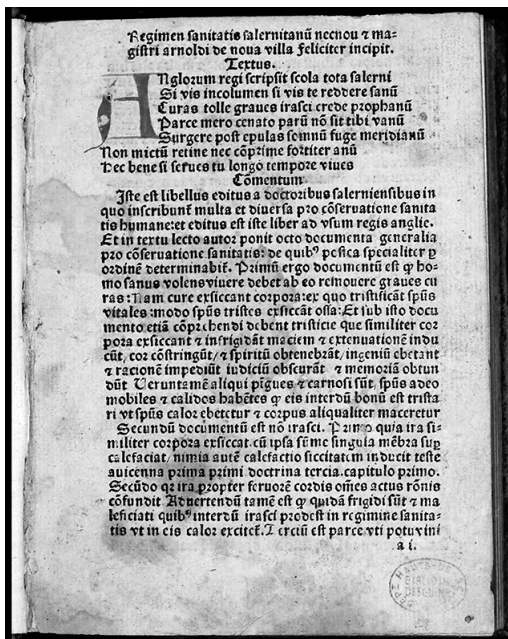 Regimen sanitatis salernitanū necnou ⁊ ma-
gistri arnoldi de noua villa feliciter incipit.
Textus.
ANglorum regi scripsit scola tota salerni
Si vis incolumen si vis te reddere sanū
Curas tolle graues irasci crede prophanū
Parce mero cenato parū nō sit tibi vanū
Surgere post epulas somnū fuge meridianū
Non mictū retine nec cōprime fortiter anū
Hec bene si serues tu longo tempore viues
Cōmentum
Iste est libellus editus a doctoribus salerniensibus in
quo inscribunt̄ multa et diuersa pro cōseruatione sanita
tis humane: et editus est iste liber ad vsum regis anglie.
Et in textu lecto autor ponit octo documenta generalia
pro cōseruatione sanitatis: de quibꝰ postea specialiter ꝑ
ordinē determinabit̄. Primū ergo documentū est ꝙ ho-
mo sanus volens viuere debet ab eo remouere graues cu
ras: Nam cure exsiccant corpora: ex quo tristificāt spūs
vitales: modo spūs tristes exsiccāt ossa: Et sub isto docu
mento etiā cōprehendi debent tristicie que similiter cor
pora exsiccant ⁊ infrigidāt maciem ⁊ extenuationē indu
cūt, cor cōstringūt, ⁊ spiritū obtenebrāt, ingeniū ebetant
⁊ racionē impediūt iudiciū obscurāt ⁊ memoriā obtun
dūt Ueruntamē aliqui pīgues ⁊ carnosi sūt, spūs adeo
mobiles ⁊ calidos habētes ꝙ eis interdū bonū est trista
ri vt spūs calor ebetetur ⁊ corpus aliqualiter maceretur
Secundū documentū est nō irasci. Primo quia ira si-
militer corpora exsiccat cū ipsa sūme singula mēbra suꝑ
calefaciat, nimia autē calefactio siccitatem inducit teste
auicenna prima primi doctrina tercia. capitulo primo.
Secūdo qꝛ ira propter feruorē cordis omēs actus rōnis
cōfundit Aduertendū tamē est ꝙ quidā frigidi sūt ⁊ ma
leficiati quibꝰ interdū irasci prodest in regimine sanita-
tis vt in eis calor excitet̄. Terciū est parce vti potu vini
a i.